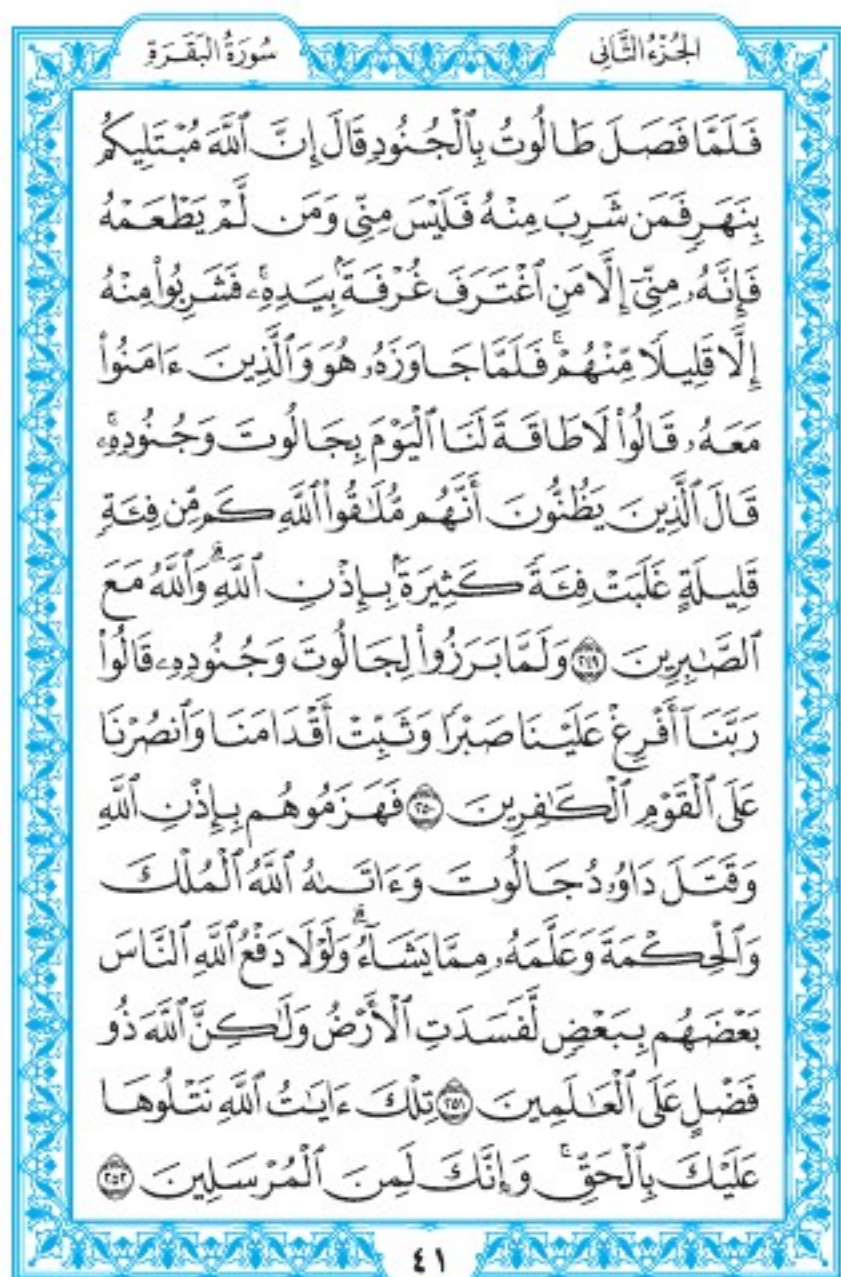 الجُزْءُ الثَّانِى
سُورَةُ البَقَرَةِ
فَلَمَّا فَصَلَ طَالُوتُ بِٱلْجُنُودِ قَالَ إِنَّ ٱللَّهَ مُبْتَلِيكُم
بِنَهَرٍ فَمَن شَرِبَ مِنْهُ فَلَيْسَ مِنِّى وَمَن لَّمْ يَطْعَمْهُ
فَإِنَّهُۥ مِنِّىٓ إِلَّا مَنِ ٱغْتَرَفَ غُرْفَةًۢ بِيَدِهِۦۚ فَشَرِبُوا۟ مِنْهُ
إِلَّا قَلِيلًا مِّنْهُمْۚ فَلَمَّا جَاوَزَهُۥ هُوَ وَٱلَّذِينَ ءَامَنُوا۟
مَعَهُۥ قَالُوا۟ لَا طَاقَةَ لَنَا ٱلْيَوْمَ بِجَالُوتَ وَجُنُودِهِۦۚ
قَالَ ٱلَّذِينَ يَظُنُّونَ أَنَّهُم مُّلَٰقُوا۟ ٱللَّهِ كَم مِّن فِئَةٍ
قَلِيلَةٍ غَلَبَتْ فِئَةً كَثِيرَةًۢ بِإِذْنِ ٱللَّهِۗ وَٱللَّهُ مَعَ
ٱلصَّٰبِرِينَ ٢٤٩ وَلَمَّا بَرَزُوا۟ لِجَالُوتَ وَجُنُودِهِۦ قَالُوا۟
رَبَّنَآ أَفْرِغْ عَلَيْنَا صَبْرًا وَثَبِّتْ أَقْدَامَنَا وَٱنصُرْنَا
عَلَى ٱلْقَوْمِ ٱلْكَٰفِرِينَ ٢٥٠ فَهَزَمُوهُم بِإِذْنِ ٱللَّهِ
وَقَتَلَ دَاوُۥدُ جَالُوتَ وَءَاتَىٰهُ ٱللَّهُ ٱلْمُلْكَ
وَٱلْحِكْمَةَ وَعَلَّمَهُۥ مِمَّا يَشَآءُۗ وَلَوْلَا دَفْعُ ٱللَّهِ ٱلنَّاسَ
بَعْضَهُم بِبَعْضٍ لَّفَسَدَتِ ٱلْأَرْضُ وَلَٰكِنَّ ٱللَّهَ ذُو
فَضْلٍ عَلَى ٱلْعَٰلَمِينَ ٢٥١ تِلْكَ ءَايَٰتُ ٱللَّهِ نَتْلُوهَا
عَلَيْكَ بِٱلْحَقِّۚ وَإِنَّكَ لَمِنَ ٱلْمُرْسَلِينَ ٢٥٢
٤١